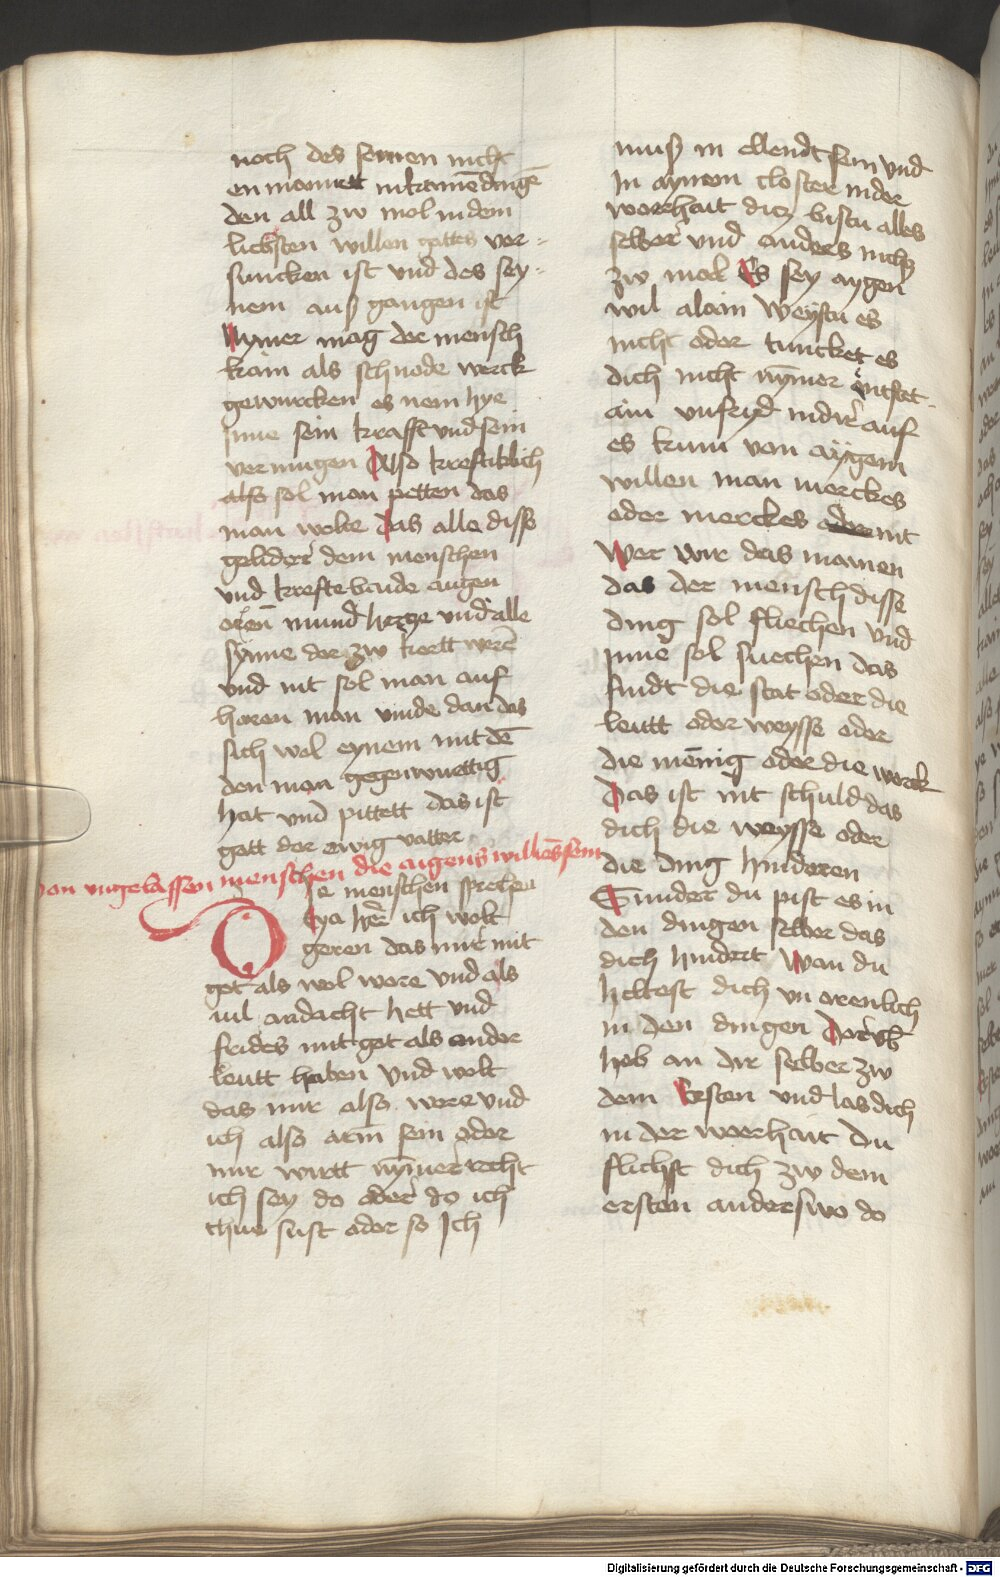 noch des seinen nicht
en mainett in kainē dingē
den all zw mol in dem
liebsten willen gottes vor-
suncken ist vnd des sey-
nem auß gangen ist
Nymer mag der mensch
kain als schnode werck
gewurcken es nem hye
jnne sein krafft vnd sein
vermugen Also kreftiklich
also sol man petten das
man wolte das alle disse
gelider dem menschen
vnd krefte baide augen
oren mund hercze vnd alle
synne dar zw kertt werē
vnd nit sol man auf
horen man vinde dan das
sich wol eynem mit dē
den man gegenwuettig
hat vnd pittett das ist
gott der ewig vatter
von vngelassen menschen die aigens willens sein
Die menschen sprechen
Eya her ich wolt
geren das mir mit
got als wol were vnd als
vil andacht hett vnd
frides mit got als ander
leutt haben vnd wolt
das mir also were vnd
ich also arm sein oder
mir wirtt nymer recht
ich sey do oder do ich
thue sust oder so Ich
muß in ellendt sein vnd
In aynem closter in der
worhait diz bistu alles
selber vnd anders nichz
zw mol Es sey aygen
wil alain Weystu es
nicht oder tuncket es
dich nicht nymer entstet
ain vnfryd in dir auf
es kum von aygem
willen man merckes
oder merckes nit
Wer wir das mainen
das der mensch disse
ding sol fliechen vnd
jnne sol suechen das
findt die stat oder die
leutt oder weysse oder
die menig oder die werck
Das ist nit schuld das
dich die weysse oder
die ding hinderen
Sunder du pist es in
den dingen selber das
dich hindert Wan du
heltest dich vn orenlich
in den dingen Dorvb
heb an dir selber zw
dem Ersten vnd las dich
in der worhait Du
flichst dich zw dem
ersten anderswo do